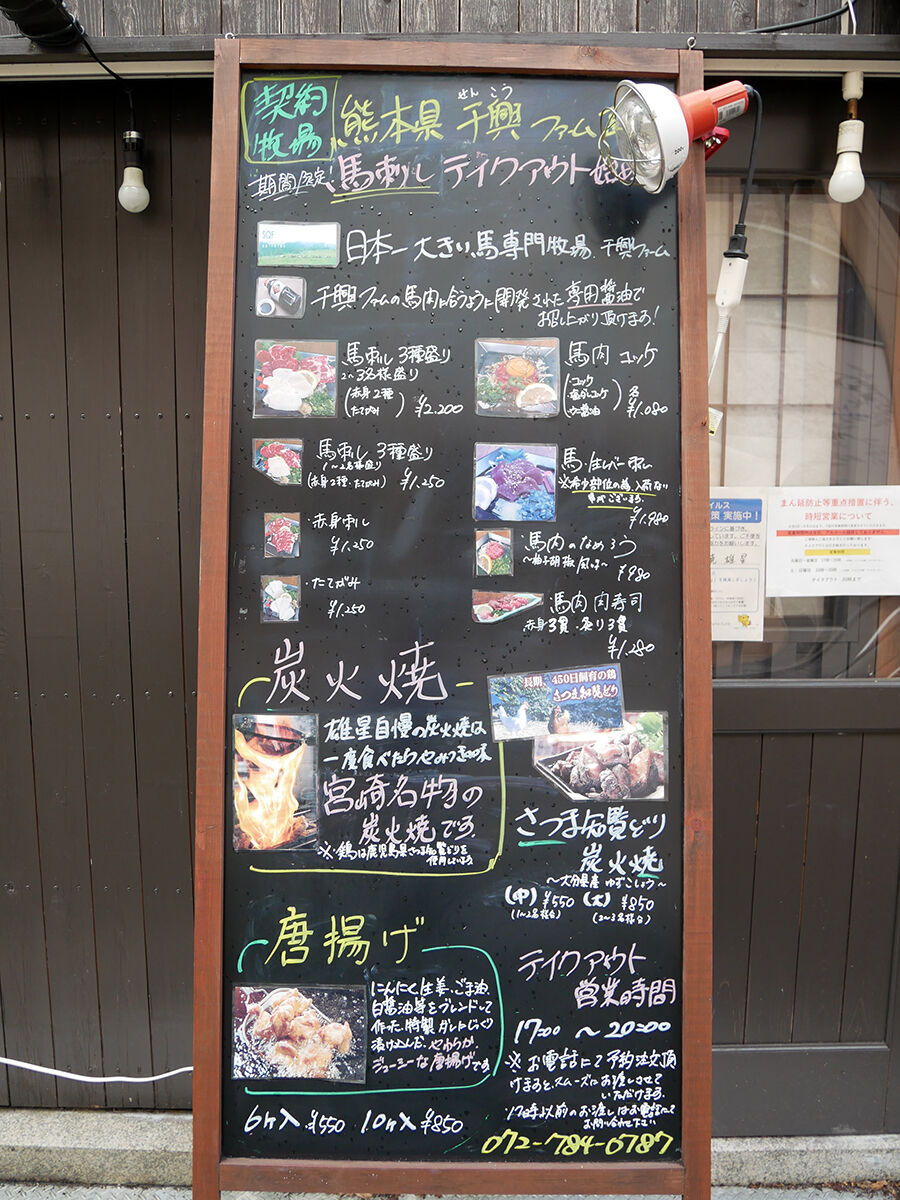 契約
牧場
熊本県 千興 ファーム
せんこう
期間限定!
馬刺し テイクアウト始め
SQF
日本一大きい馬専門牧場 千興ファーム
千興ファームの馬肉に合うように開発された専用醤油で
お召し上がり頂けます!
馬刺し 3種盛り
2〜3名様盛り
(赤身2種
たてがみ)
¥2.200
馬肉 ユッケ
(・ユッケ
・塩ダレユッケ
・ウニ醤油) 各
¥1.080
馬刺し 3種盛り
1〜2名様盛り
(赤身2種・たてがみ) ¥1.250
馬・生レバー刺し
※希少部位の為、入荷ない
事もございます。
¥1,980
赤身刺し
¥1.250
・馬肉のなめろう
〜柚子胡椒風味〜
¥980
・たてがみ
¥1.250
・馬肉 肉寿司
赤身3貫・炙り3貫
¥1.280
炭火焼
雄星自慢の炭火焼は
一度食べたらやみつきの味
宮崎名物の
炭火焼です。
※鶏は鹿児島県さつま知覧どりを
使用しています
長期、450日飼育の鶏
さつま知覧どり
さつま知覧どり
炭火焼
〜大分県産 ゆずこしょう〜
(中) ¥550 (大) ¥850
(1〜2名様台) (2〜3名様台)
唐揚げ
にんにく、生姜、ごま油、
白醤油等をブレンドして
作った、特製ダレにじっくり
漬け込んだ、やわらか
ジューシーな唐揚げです
6ヶ入 ¥550 10ヶ入 ¥850
テイクアウト
営業時間
17:00 〜 20:00
※お電話にて予約注文頂
けますと、スムーズにお渡しさせて
いただけます。
17時以前のお渡しはお電話にて
お問い合わせ下さい
072-784-0787
まん延防止等重点措置に伴う、
時短営業について
テイクアウト 20時まで
イルス
策 実施中!